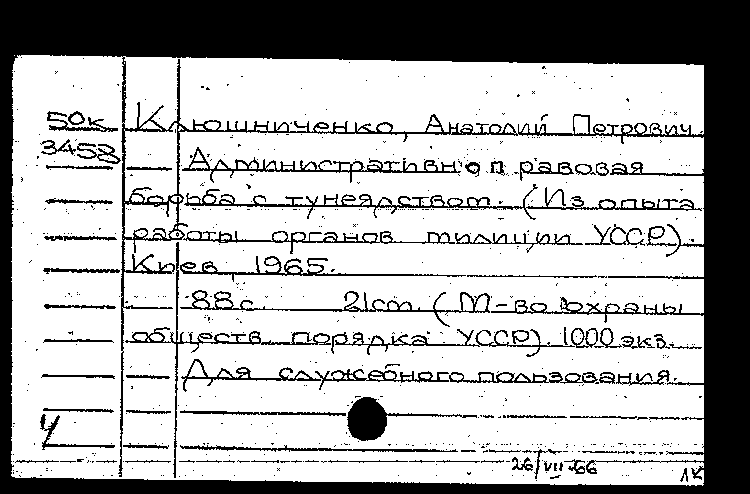 50к Клюшниченко, Анатолий Петрович.
3458 Административноправовая
борьба с тунеядством. (Из опыта
работы органов милиции УССР).
Киев, 1965.
88с. 21см. (М-во охраны
обществ порядка УССР). 1000 экз.
Для служебного пользования.
26/VII-66